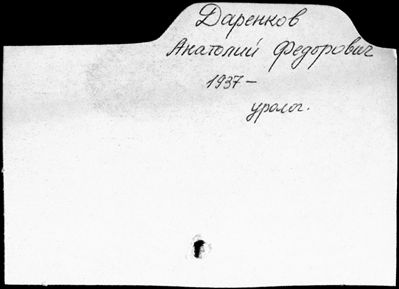 Даренков
Анатолий Федорович
1937-
уролог.